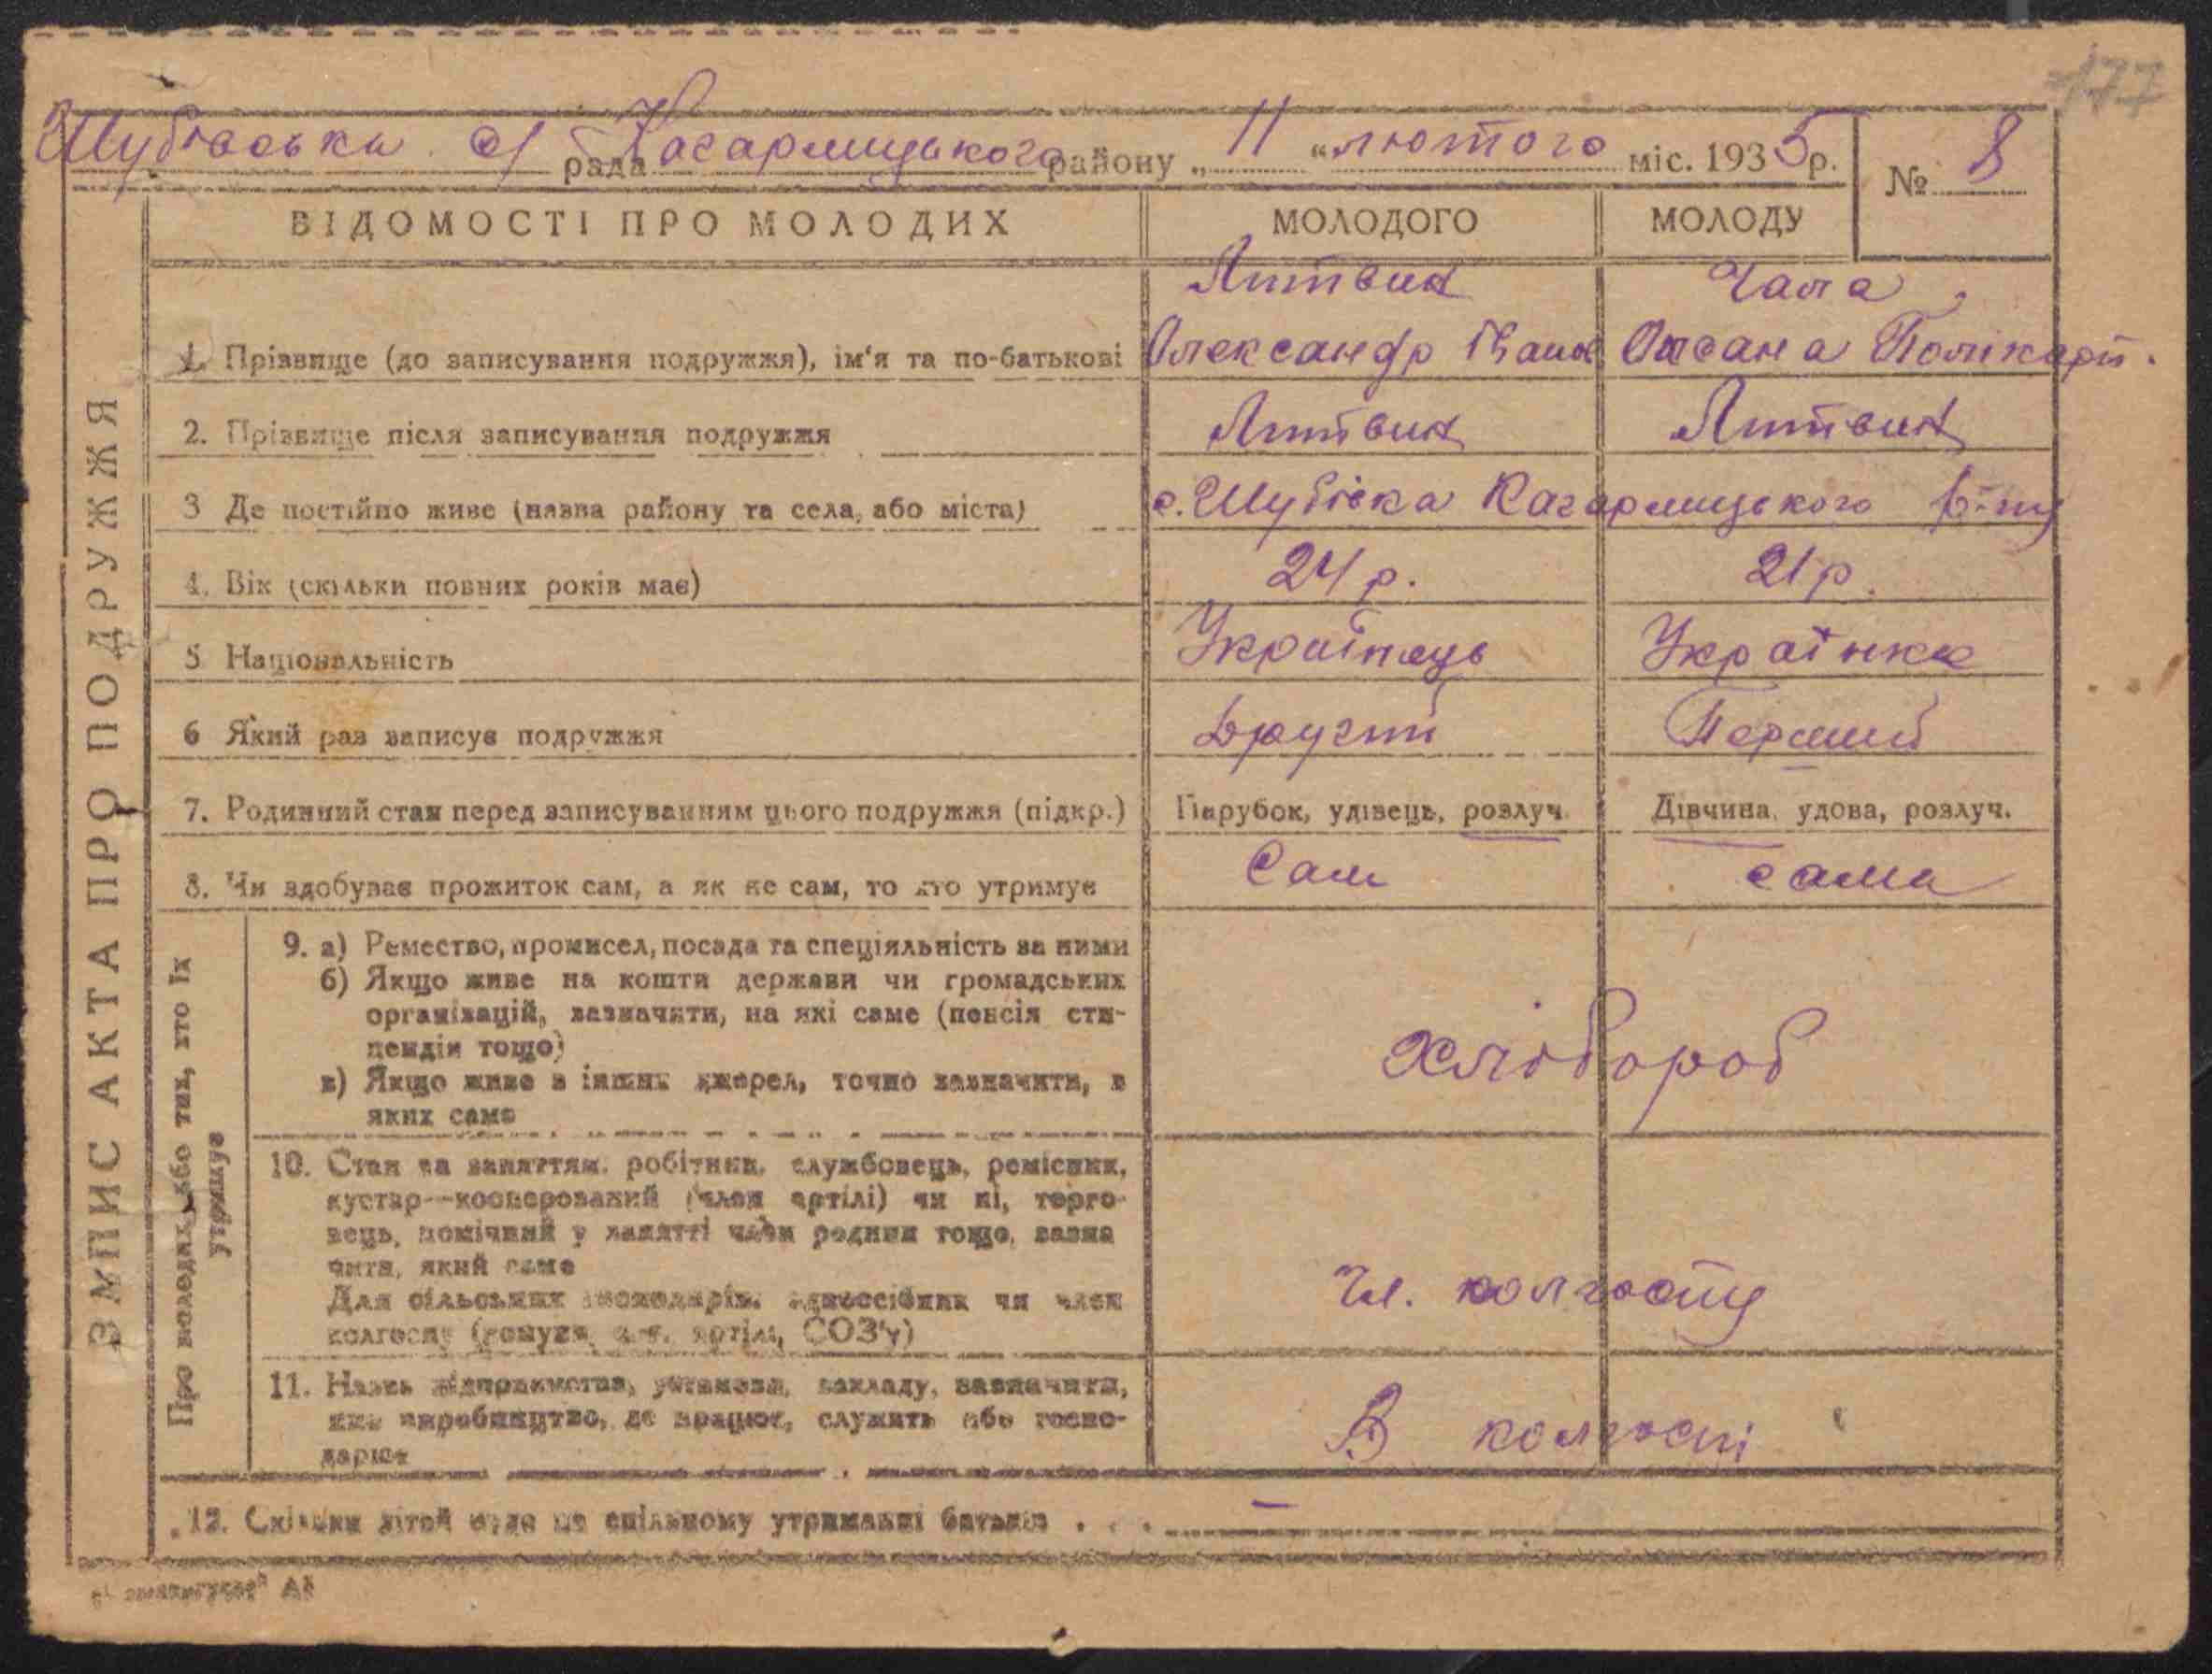 177
Шубівська с/рада Кагарлицького району „11" лютого міс. 1935 р. № 8
ЗАПИС АКТА ПРО ПОДРУЖЖЯ
ВІДОМОСТІ ПРО МОЛОДИХ МОЛОДОГО МОЛОДУ
Литвин Чала
1. Прізвище (до записування подружжя), ім'я та по-батькові Олександр Іван Оксана Полікарп.
2. Прізвище після записування подружжя Литвин Литвин
3 Де постійно живе (назва району та села, або міста) с. Шубівка Кагарлицького р-ну
4. Вік (скільки повних років має) 24 р. 21 р.
5 Національність Українець Українка
6 Який раз записує подружжя Другий Перший
7. Родинний стан перед записуванням цього подружжя (підкр.) Парубок, удівець, розлуч. Дівчина, удова, розлуч.
8. Чи здобуває прожиток сам, а як не сам, то хто утримує Сам сама
Про молодих або тих, хто їх
утримує
9. а) Ремество, промисел, посада та спеціяльність за ними
б) Якщо живе на кошти держави чи громадських
організацій, зазначити, на які саме (пенсія сти-
пендія тощо)
в) Якщо живе з інших джерел, точно зазначити, з
яких саме
хлібороб
10. Стан за заняттям: робітник, службовець, ремісник,
кустар—кооперований (член артілі) чи ні, торго-
вець, помічний у занятті член родини тощо, зазна
чити, який саме
Для сільських господарів: одноосібник чи член
колгоспу (комуни, с.-г. артілі, СОЗ'у)
Чл. колгоспу
11. Назва підприємства, установи, закладу, зазначити,
яке виробництво, де працює, служить або госпо-
дарює
В колгоспі
12. Скільки дітей буде на спільному утриманні батьків . . . —